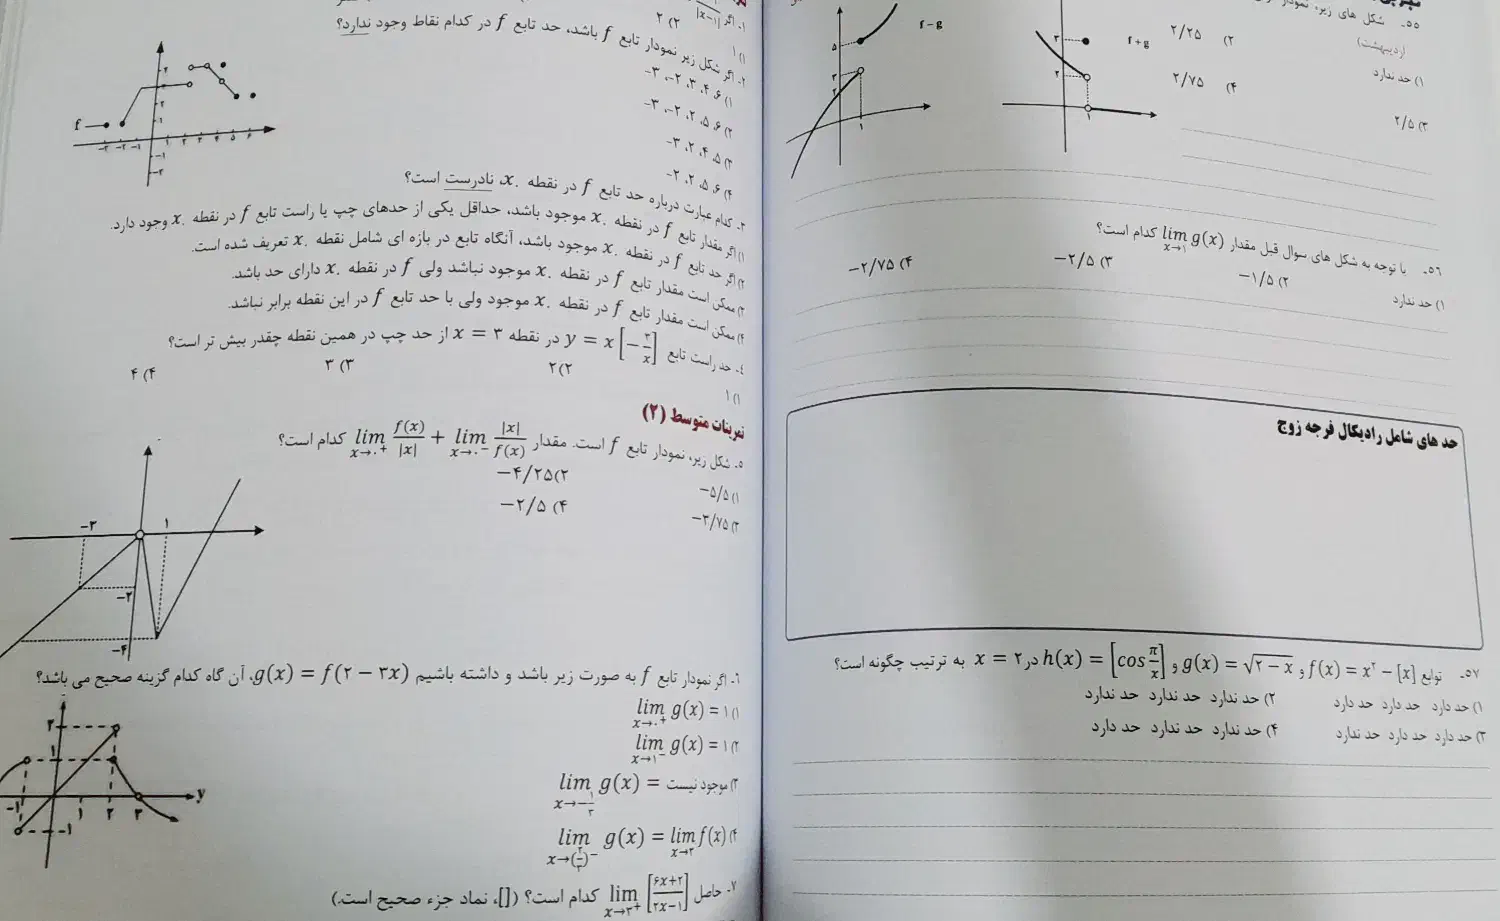 ۵۵- شکل های زیر، نمودار
(اردیبهشت)
۱) حد ندارد
۲) ۲/۲۵
۳) ۲/۵
۴) ۲/۷۵
f+g
۳
۲
۱
f-g
۵
۳
۲
۱
۵۶- با توجه به شکل های سوال قبل مقدار lim x→۱ g(x) کدام است؟
۱) حد ندارد
۲) −۱/۵
۳) −۲/۵
۴) −۲/۷۵
حد های شامل رادیکال فرجه زوج
۵۷- توابع f(x) = x² − [x] و g(x) = √(۲ − x) و h(x) = [cos π/x] در x = ۲ به ترتیب چگونه است؟
۱) حد دارد حد دارد حد دارد
۲) حد ندارد حد ندارد حد ندارد
۳) حد دارد حد دارد حد ندارد
۴) حد ندارد حد ندارد حد دارد
۱- اگر |x−۱|
۱) ۱
۲) ۲
۲- اگر شکل زیر نمودار تابع f باشد، حد تابع f در کدام نقاط وجود ندارد؟
۱) ۶، ۴، ۳، ۲−، ۳−
۲) ۶، ۵، ۲، ۲−، ۳−
۳) ۵، ۴، ۲، ۳−
۴) ۶، ۵، ۲، ۲−
f
۳- کدام عبارت درباره حد تابع f در نقطه x۰ نادرست است؟
۱) اگر مقدار تابع f در نقطه x۰ موجود باشد، حداقل یکی از حدهای چپ یا راست تابع f در نقطه x۰ وجود دارد.
۲) اگر حد تابع f در نقطه x۰ موجود باشد، آنگاه تابع در بازه ای شامل نقطه x۰ تعریف شده است.
۳) ممکن است مقدار تابع f در نقطه x۰ موجود نباشد ولی f در نقطه x۰ دارای حد باشد.
۴) ممکن است مقدار تابع f در نقطه x۰ موجود ولی با حد تابع f در این نقطه برابر نباشد.
۴- حد راست تابع y = x[−۳/x] در نقطه x = ۳ از حد چپ در همین نقطه چقدر بیش تر است؟
۱) ۱
۲) ۲
۳) ۳
۴) ۴
تمرینات متوسط (۲)
۵- شکل زیر، نمودار تابع f است. مقدار lim x→۰⁺ f(x)/|x| + lim x→۰⁻ |x|/f(x) کدام است؟
۱) −۵/۵
۲) −۴/۲۵
۳) −۳/۷۵
۴) −۲/۵
−۳
۱
−۲
−۴
۶- اگر نمودار تابع f به صورت زیر باشد و داشته باشیم g(x) = f(۲ − ۳x)، آن گاه کدام گزینه صحیح می باشد؟
۱) lim x→۰⁺ g(x) = ۱
۲) lim x→۱⁻ g(x) = ۱
۳) lim x→−۱/۳ g(x) = موجود نیست
۴) lim x→(۲/۳)⁻ g(x) = lim x→۲ f(x)
۲
۱
−۱
۱ ۲ ۳
y
−۱
۷- حاصل lim x→۳⁺ [(۶x+۲)/(۲x−۱)] کدام است؟ ([]، نماد جزء صحیح است.)